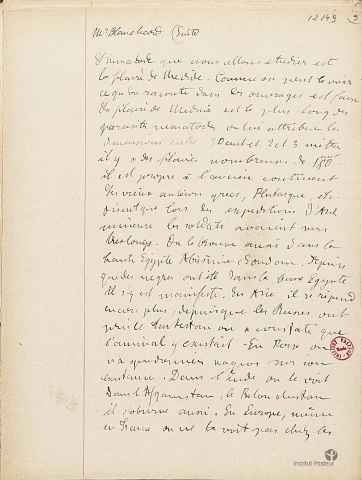 12149 3
Mr Blanchard (Suite)
Nématode que nous allons étudier est
la filaire de Médine. Comme on peut le voir
ce qu'on raconte dans les ouvrages est faux
La filaire de Médine est le plus long des
parasites nematodes on lui attribue les
dimensions entre 50 cent et 3 mètres
il y a des filaires nombreuses de
il est propre à l'ancien continent
des vieux auteurs grecs, Plutarque, etc.
disent que lors des expéditions d'Asie
mineure les soldats avaient vers
On le trouve aussi dans la
haute Egypte Abissinie Soudan. Depuis
que des negres ont été dans la basse Egypte
il s'y est manifesté. En Asie il se répand
encore plus, depuis que les Russes ont
pris le Turkestan on a constaté que
l'animal y existait. En Perse on
son
existence. Dans l'Inde on le voit
Dans l'Afganistan, le Belouchistan
il s'observe aussi. En Europe, même
en France on ne le voit pas chez les
Institut Pasteur